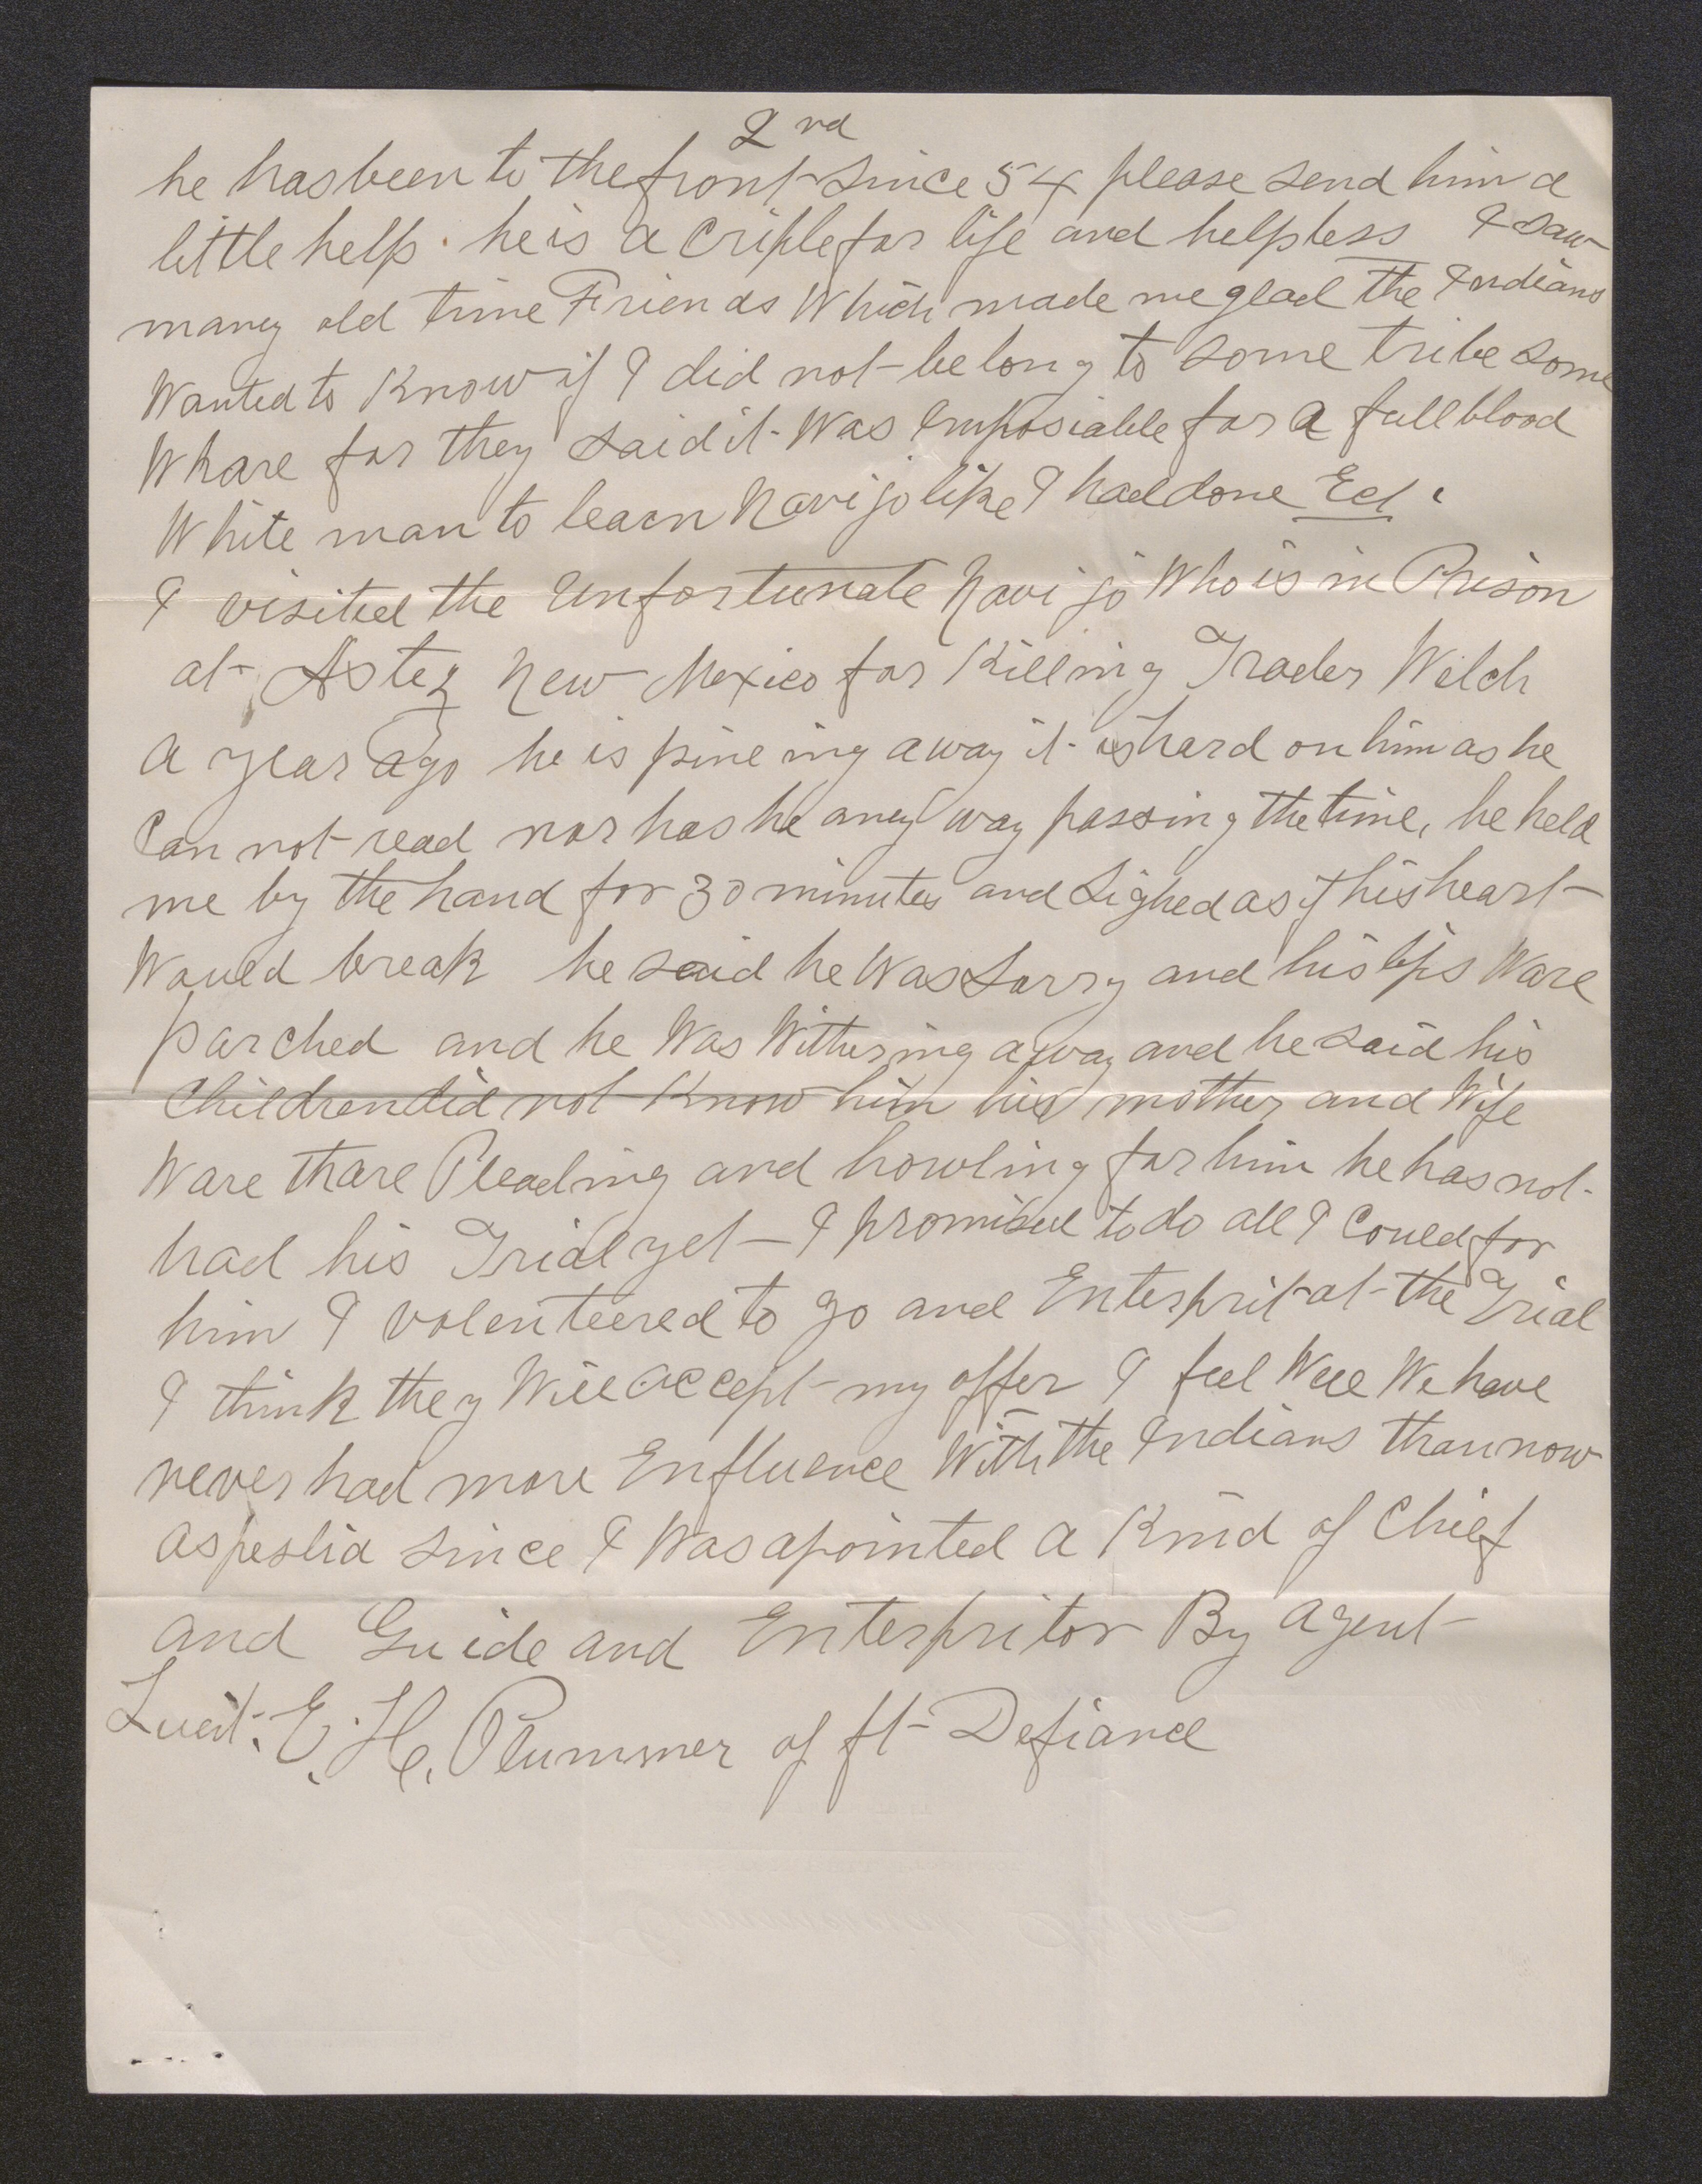 2nd
he has been to the front since 54 please send him a
little help. he is a criple for life and helpless I saw
maney old time Friends Which made me glad The Indians
Wanted to Know if I did not belong to some tribe some
Whare for they said it Was Imposiable for a full blood
White man to learn Navijo like I had done Ed.
I visited the Unfortunate Navijo Who is in Prison
at Aztez New Mexico for Killing Trader Welch
A year ago he is pineing away it is hard on him as he
Can not read nor has he aney way passing the time, he held
me by the hand for 30 minutes and Sighed as if his heart
Woued break he said he Was Sorry and his lips Ware
parched and he Was Withering away and he said his
Children did not Know him his mother and Wife
Ware thare Pleading and howling for him he has not
had his Trial yet - I promised to do all I Coued for
him I volenteered to go and Enterprit at the Trial
I think they Will accept my offer I feel Well We have
never had more Enfluence With the Indians than now
aspeslia since I Was apointed a Kind of Chief
and Guide and Enterpritor By agent
Lueit. E. H. Plummer of ft Defiance